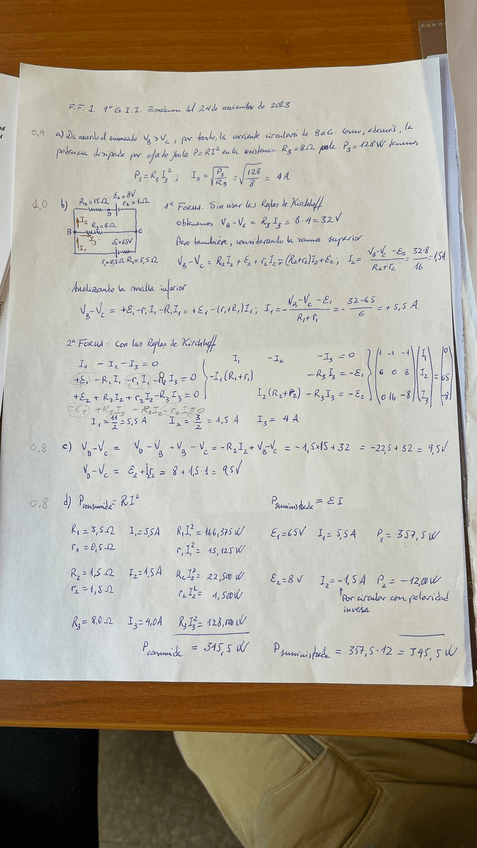 F.F.I. 1º G.I.I. Examen del 24 de noviembre de 2023
0,9 a) De acuerdo al enunciado V_B > V_C, por tanto, la corriente circulará de B a C. Como, además, la
potencia disipada por efecto Joule P=RI² en la resistencia R₃=8Ω es de P₃=128W tenemos
P₃=R₃I₃² ; I₃=√(P₃/R₃)=√(128/8)= 4A
1.0 b) 1ª Forma. Sin usar las Reglas de Kirchhoff
R₂=15Ω ε₂=8V r₂=1Ω
B D C
I₂ R₃=8Ω I₃ I₁
ε₁=65V
r₁=0,5Ω R₁=5,5Ω
obtenemos V_B-V_C = R₃I₃ = 8·4=32V
Pero también, considerando la rama superior
V_B-V_C = R₂I₂+ε₂+r₂I₂=(R₂+r₂)I₂+ε₂; I₂=(V_B-V_C-ε₂)/(R₂+r₂)=(32-8)/16=1,5A
Analizando la malla inferior
V_B-V_C = +ε₁-r₁I₁-R₁I₁=+ε₁-(r₁+R₁)I₁; I₁=-(V_B-V_C-ε₁)/(R₁+r₁)=-(32-65)/6=+5,5A
2ª Forma: Con las Reglas de Kirchhoff
I₁ - I₂ - I₃ = 0 I₁ -I₂ -I₃=0
+ε₁ -R₁I₁ -r₁I₁ -R₃I₃=0 -I₁(R₁+r₁) -R₃I₃=-ε₁
+ε₂ +R₂I₂ +r₂I₂ -R₃I₃=0 I₂(R₂+r₂) -R₃I₃=-ε₂
(1 -1 -1 6 0 8 0 16 -8)(I₁ I₂ I₃)=(0 65 -8)
I₁=11/2=5,5A I₂=3/2=1,5A I₃=4A
0.8 c) V_D-V_C = V_D-V_B+V_B-V_C=-R₂I₂+V_B-V_C=-1,5×15+32=-22,5+32=9,5V
V_D-V_C=ε₂+I₂r₂=8+1,5·1=9,5V
0.8 d) P consumida=RI² P suministrada=εI
R₁=5,5Ω I₁=5,5A R₁I₁²=166,375W ε₁=65V I₁=5,5A P₁=357,5W
r₁=0,5Ω r₁I₁²=15,125W
R₂=1,5Ω I₂=1,5A R₂I₂²=22,500W ε₂=8V I₂=-1,5A P₂=-12,00W
r₂=1,5Ω r₂I₂²=1,500W
↑Por circular con polaridad
inversa
R₃=8,0Ω I₃=4,0A R₃I₃²=128,000W
P consumida = 345,5W P suministrada=357,5-12=345,5W